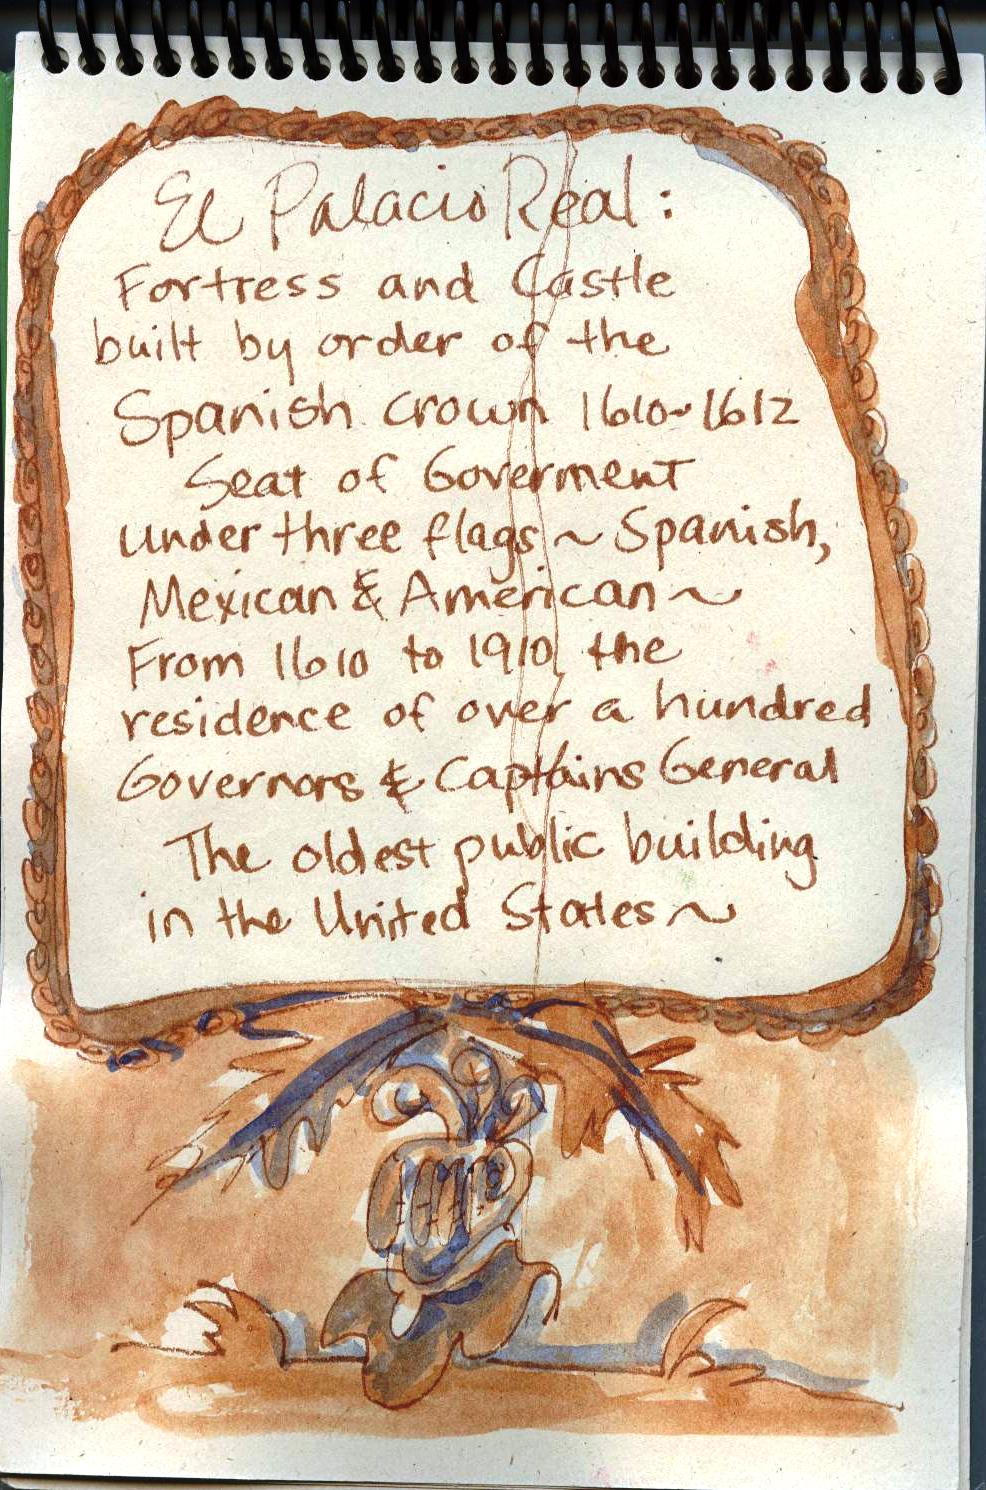 El Palacio Real:
Fortress and Castle
built by order of the
Spanish crown 1610~1612
Seat of Goverment
under three flags ~ Spanish,
Mexican & American ~
From 1610 to 1910 the
residence of over a hundred
Governors & Captains General
The oldest public building
in the United States ~